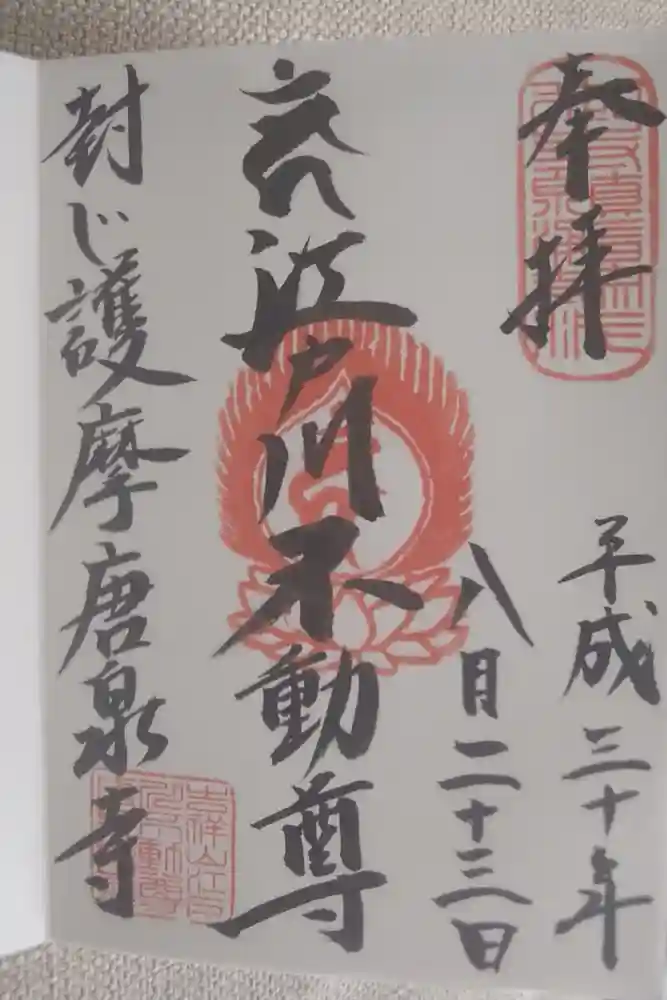 奉拝
平成三十年
八月二十三日
江戸川不動尊
封じ護摩唐泉寺
吉祥山江戸川不動尊